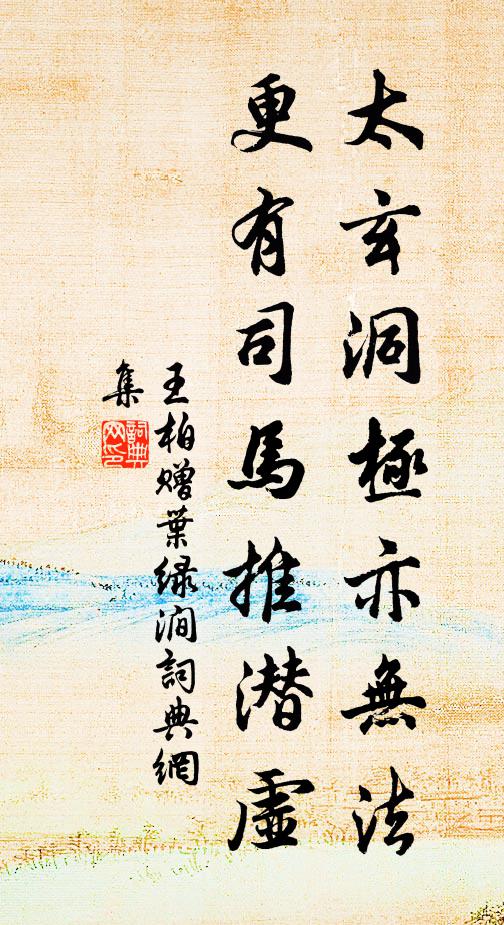 太玄洞極亦無法
更有司馬推潛虛
王柏贈葉綠澗詞典網
集
詞典網印